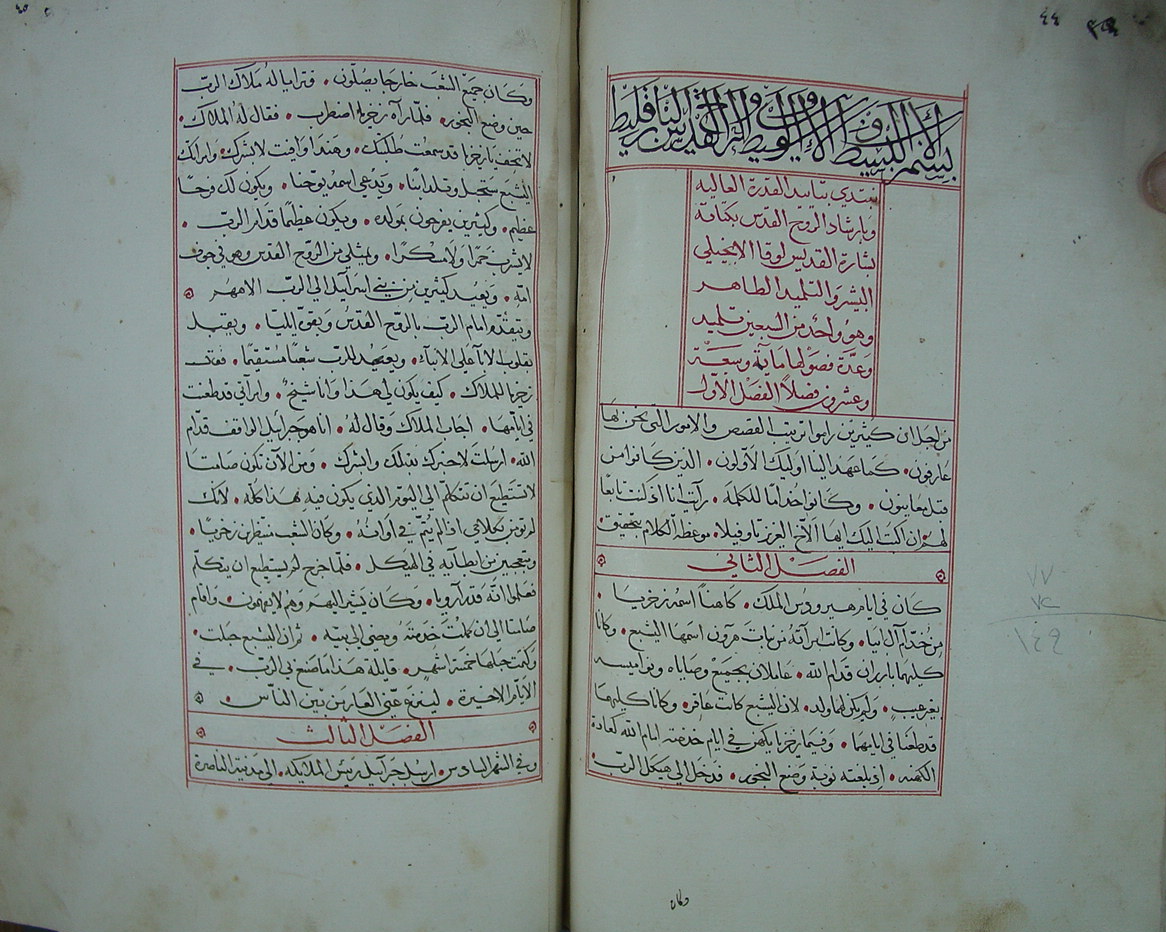 ٤٤
نبتدي بتاييد القدرة العاليه
وبارشاد الروح القدس بكتابة
بشارة القديس لوقا الانجيلي
البشير والتلميد الطاهر
وهو واحدٌ من السبعين تلميد
وعدّة فصولها مايةٌ وسبعة
وعشرون فصلاً الفصل الاوّل
من اجل ان كثيرين راموا ترتيب القصص والامور التي نحن بها
عارفون • كما عهد الينا اوليك الاوّلون • الدين كانوا من
قبل معاينون • وكانوا خدامًا للكلمه • رأيت انا اد كنت تابعًا
لهم ان اكتب اليك ايها الاخ العزيز تاوفيلا • موعظة الكلام بتحقيق •
الفصل الثاني
كان في ايام هيرودس الملك • كاهنًا اسمه زخريا •
من خدّام آل ابيا • وكانت امرآته من بنات هرون اسمها اليشبع • وكانا
كليهما بارران قدام الله • عاملان بجميع وصاياه ونواميسه
بغير عيبٍ • ولم يكن لهما ولد • لان اليشبع كانت عاقره • وكانا كليهما
قد طعنا في ايامهما • وفيما زخريا يكهن في ايام خدمته امام الله كعادة
الكهنه • اذ بلغته نوبة وضع البخور • فدخل الى هيكل الرب •
وكان
وكان جميع الشعب خارجا يصلّون • فترايا له ملاك الرب
حين وضع البخور • فلما رآه زخريا اضطرب • فقال له الملاك •
لا تخف يا زخريا قد سمعت طلبتك • وهندا وافيت لابشرك • وامراتك
اليشبع ستحبل وتلد ابنًا • ويدعى اسمه يوحنا • ويكون لك فرحًا
عظيم • وكثيرين يفرحون بمولده • ويكون عظيمًا قدام الرب •
لا يشرب خمرًا ولا مسكرًا • ويمتلي من الروح القدس وهو في جوف
امّه • ويعيد كثيرين من بني اسرآيل الى الرب الاههم
ويتقدّم امام الرب بالروح القدس وبقوّة ايليّا • ويقبل
بقلوب الابآ على الابنآء • ويعتد للرب شعبًا مستقيمًا • فقال
زخريا للملاك • كيف يكون لي هدا وانا شيخٌ • وامرآتي قد طعنت
في ايامها • اجاب الملاك وقال له • انا هو جبرآييل الواقف قدّام
الله • ارسلت لاخبرك بدلك وابشرك • ومن الآن تكون صامتًا
لا تستطيع ان تتكلم الى اليوم الدي يكون فيه هدا كلّه • لانك
لم تومن بكلامي الدي يتم في اوانه • وكان الشعب منتظرين زخريا •
ومتعجبين من ابطآيه في الهيكل • فلما خرج لم يستطيع ان يتكلّم
فعلموا انّه قد رآ رويا • وكان يشير اليهم وهم لا يفهمون • واقام
صامتًا الى ان كملت خدمته ومضى الى بيته • ثم ان اليشبع حبلت •
وكتمت حبلها خمسة اشهر • قايلة هدا ما صنع بي الرب • في
الايام الاخيرة • لينزع عنّي العار من بين الناس •
الفصل الثالث
وفي الشهر السادس • ارسل جبرآييل رييس الملايكه • الى مدينة الناصرة